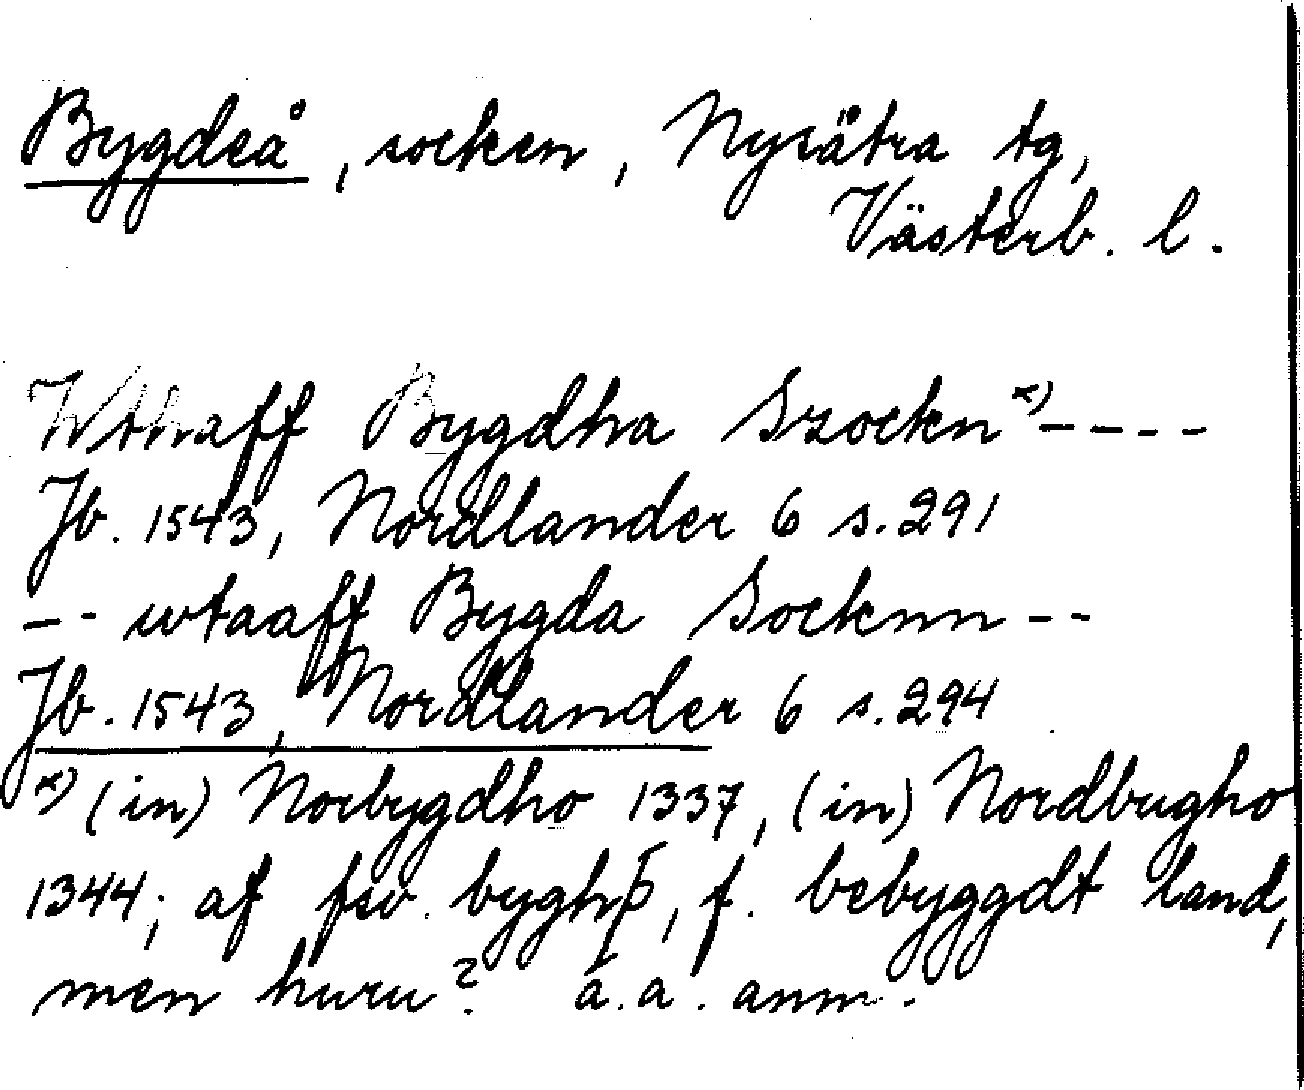 Bygdeå, socken, Nysätra tg,
Västerb. l.
Wthaff Bygdha Szockn x) - - - -
Jb. 1543, Nordlander 6 s. 291
- - wtaaff Bygda Socknn - -
Jb. 1543, Nordlander 6 s. 294
x) (in) Norbygdho 1337, (in) Nordbugho
1344; af fsv. byghþ, f. bebyggdt land,
men huru? a.a. anm.